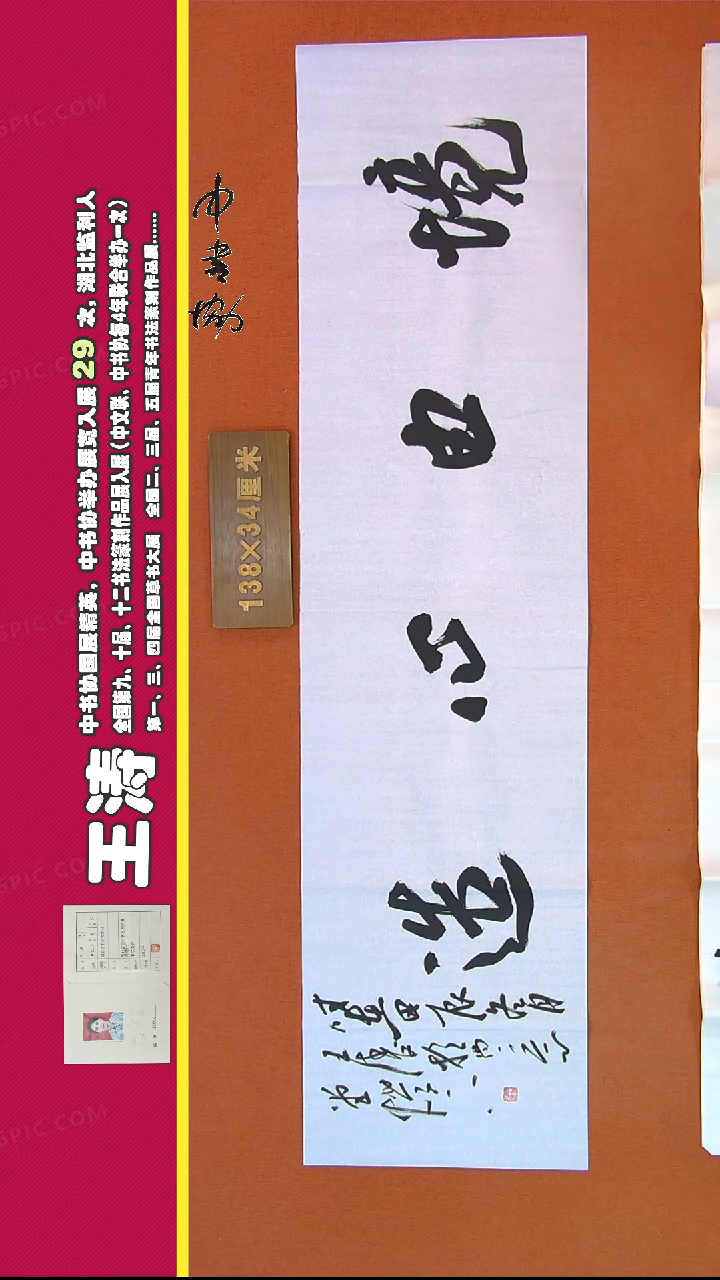 王涛
中书协国展精英，中书协举办展览入展 29 次，湖北监利人
全国第九、十届、十二书法篆刻作品展入展（中文联、中书协每4年联合举办一次）
第一、三、四届全国草书大展　全国二、三届、五届青年书法篆刻作品展......
中书协
138×34厘米
境由心造